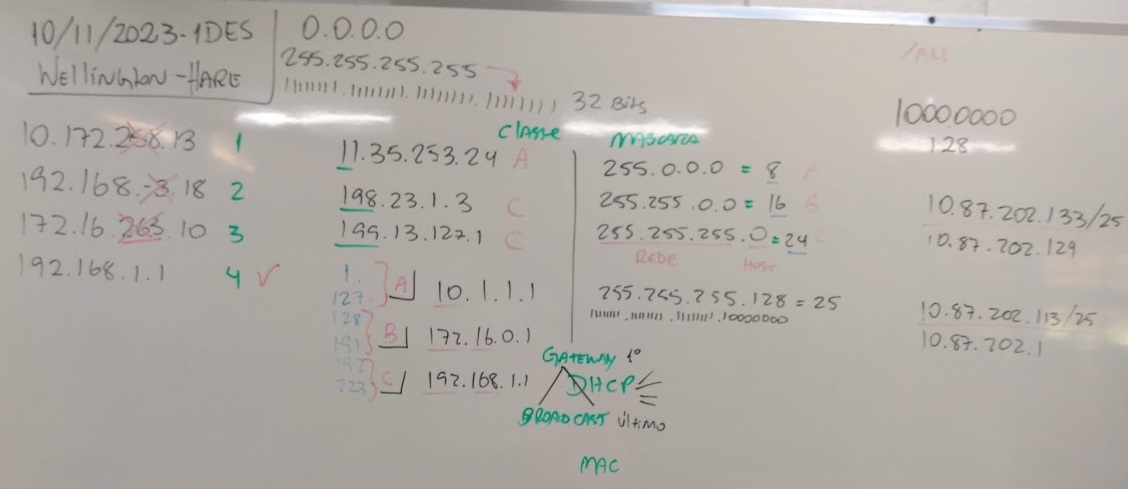 10/11/2023-1DES
Wellington-HARE
0.0.0.0
255.255.255.255
11111111.11111111.11111111.11111111 32 Bits
10.172.258.13 1
192.168.-3.18 2
172.16.263.10 3
192.168.1.1 4 ✓
Classe
11.35.253.24 A
198.23.1.3 C
199.13.127.1 C
1.
127. A 10.1.1.1
128
191 B 172.16.0.1
192
223 C 192.168.1.1
MASCARA
255.0.0.0 = 8 A
255.255.0.0 = 16 B
255.255.255.0 = 24 C
REDE Host
255.255.255.128 = 25
11111111.11111111.11111111.10000000
GATEWAY 1º
DHCP
BROADCAST ÚLTIMO
MAC
/ALL
10000000
128
10.87.202.133/25
10.87.202.129
10.87.202.113/25
10.87.202.1